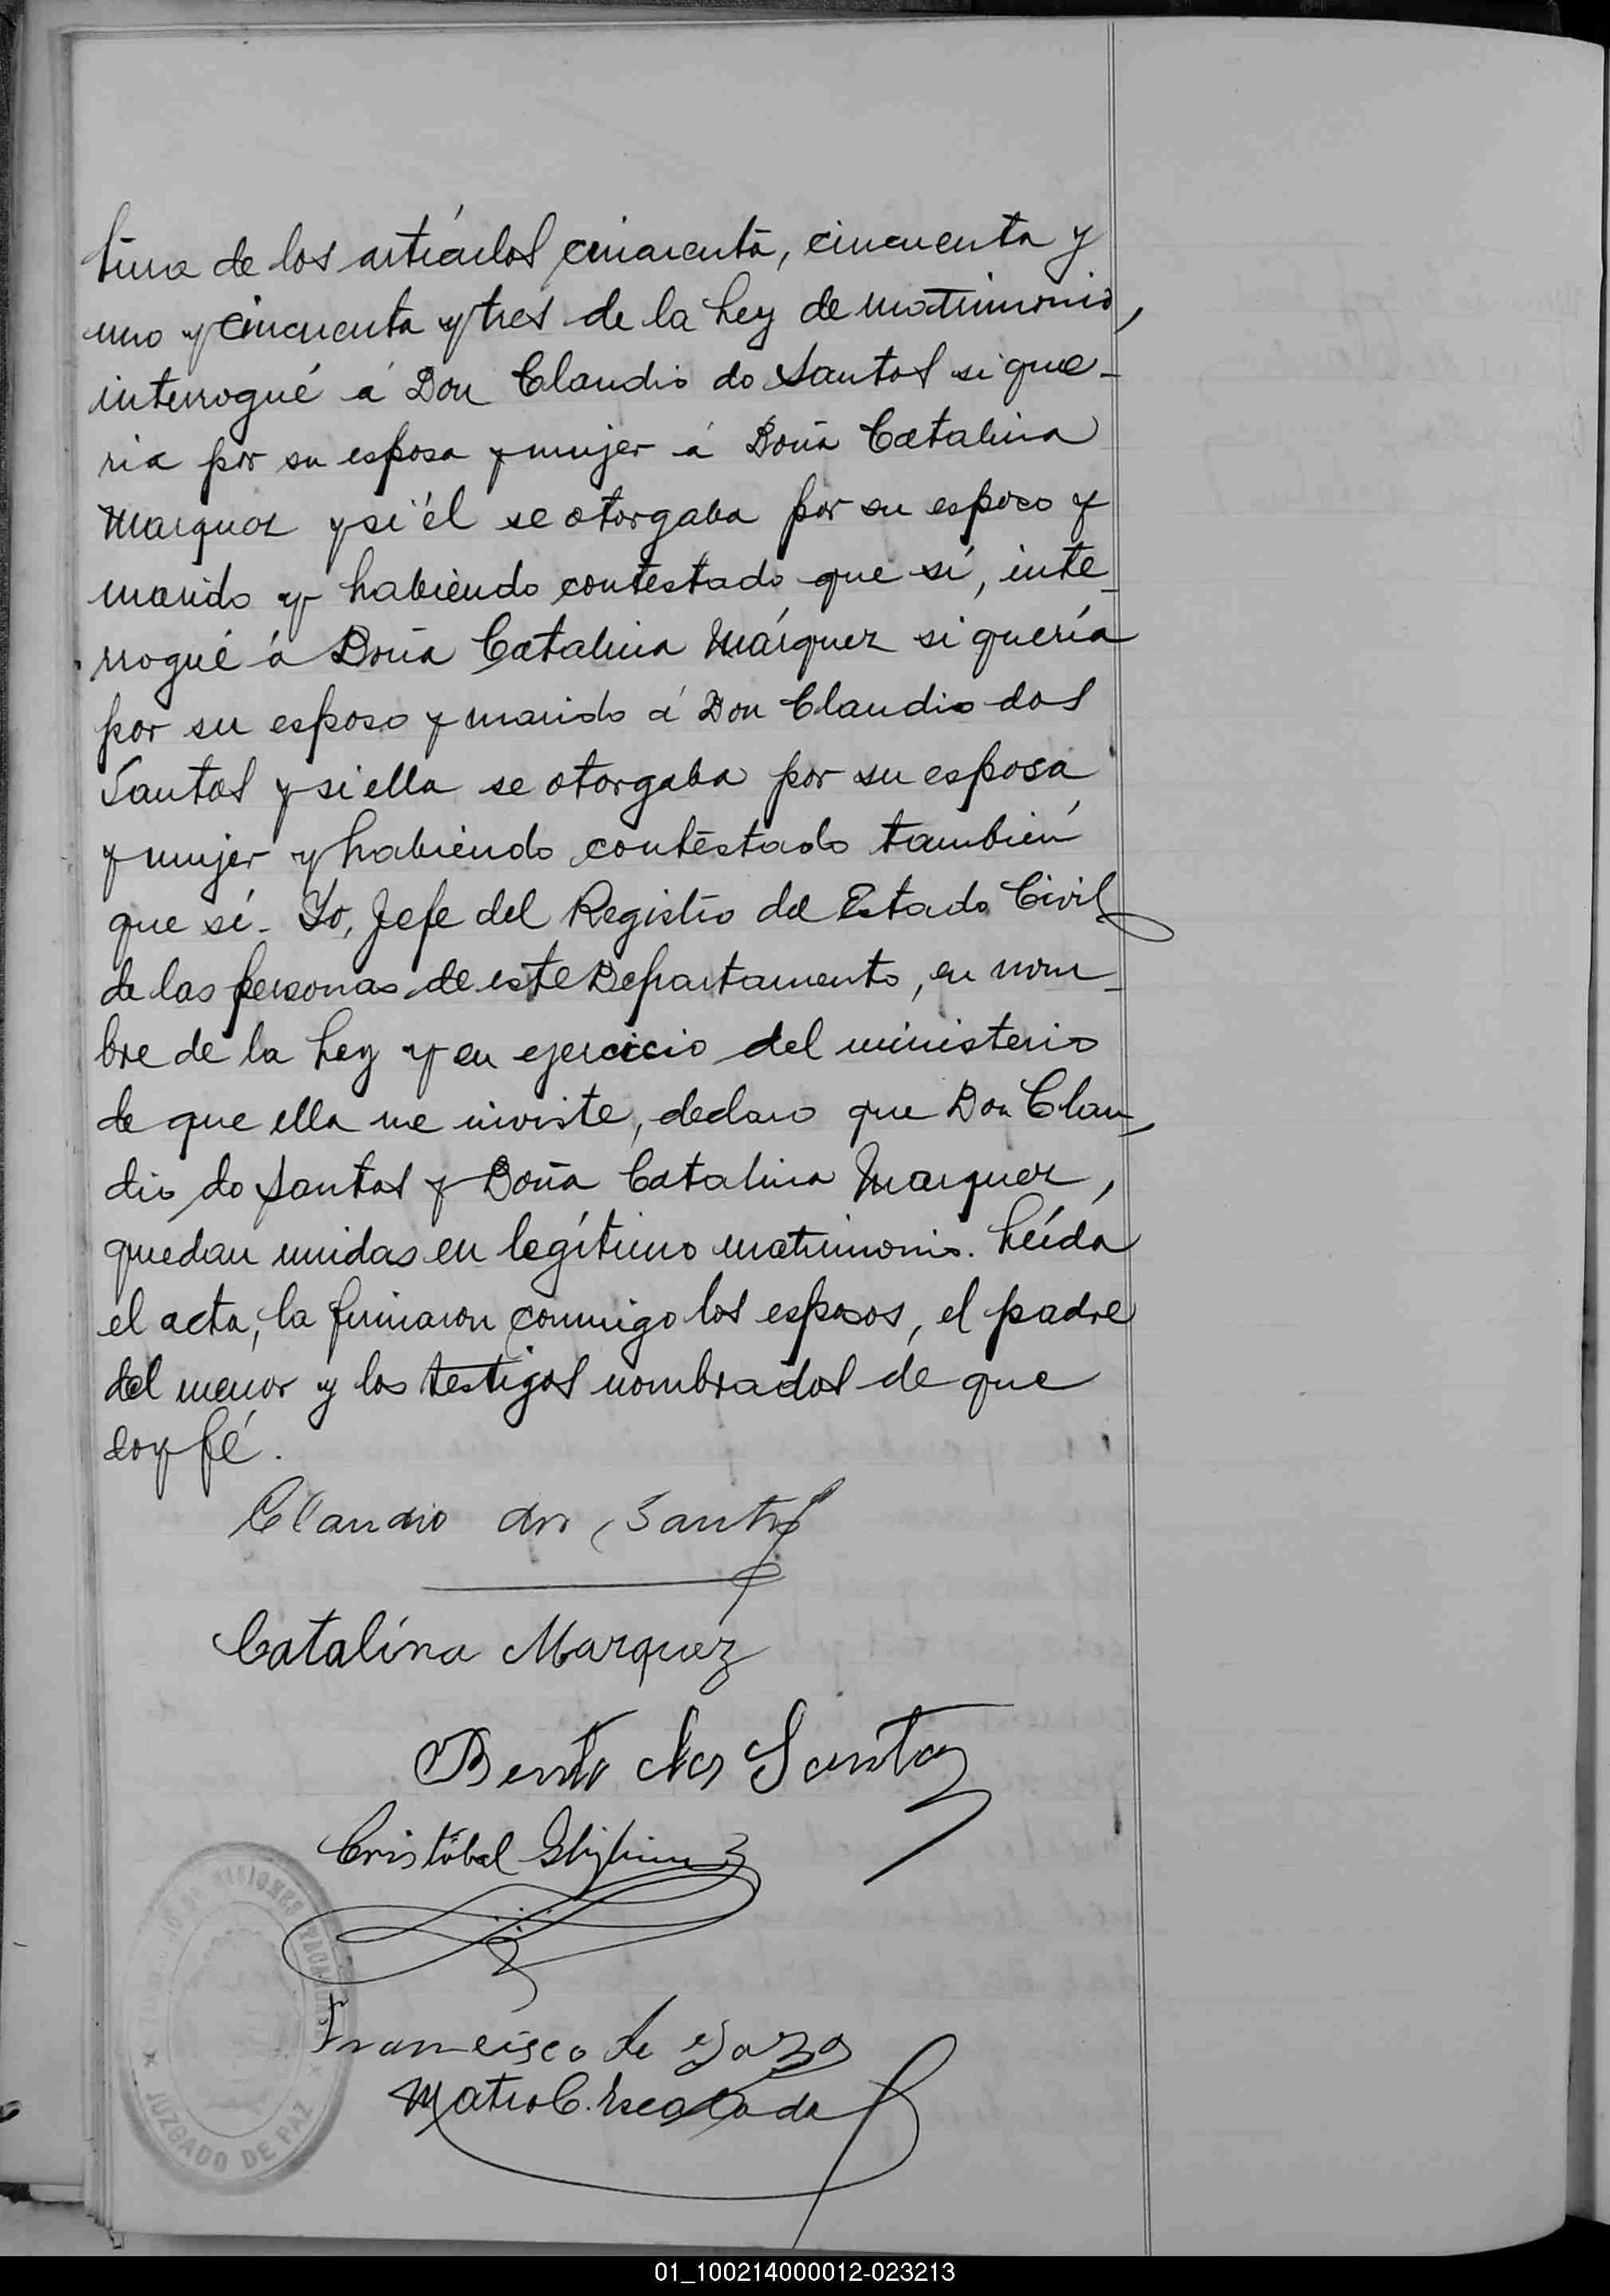 tura de los artículos cincuenta, cincuenta y
uno y cincuenta y tres de la Ley de matrimonio,
interrogué á Don Claudio do Santos si que-
ria por su esposa y mujer á Doña Catalina
Marquez y si él se otorgaba por su esposo y
marido y habiendo contestado que sí, inte-
rrogué á Doña Catalina Márquez si quería
por su esposo y marido á Don Claudio dos
Santos y si ella se otorgaba por su esposa
y mujer y habiendo contestado también
que sí. Yo, Jefe del Registro del Estado Civil
de las personas de este Departamento, en nom-
bre de la Ley y en ejercicio del ministerio
de que ella me inviste, declaro que Don Clau-
dio do Santos y Doña Catalina Marquez,
quedan unidas en legítimo matrimonio. Leída
el acta, la firmaron conmigo los esposos, el padre
del menor y los testigos nombrados de que
doy fé.
Claudio dos Santos
Catalina Marquez
Bento dos Santos
Cristóbal
Francisco de
Mateo C. Escalada
MISIONES
JUZGADO DE PAZ
01_100214000012-023213